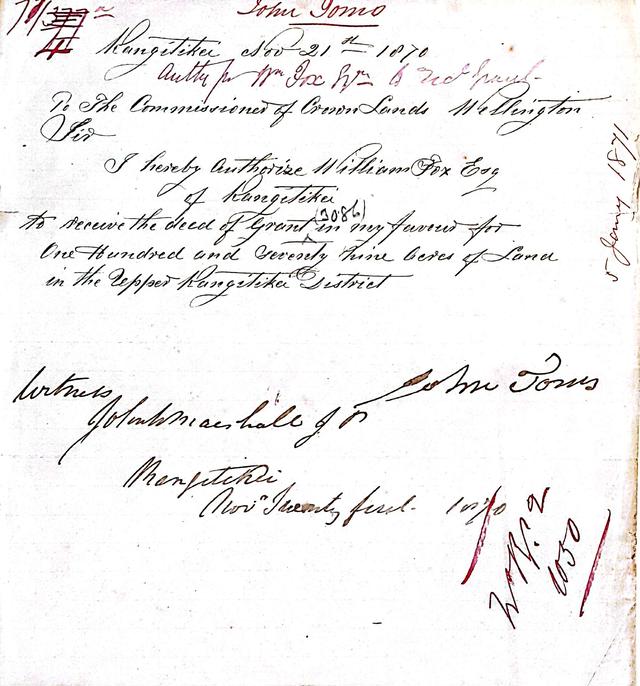 John Toms
Rangitikei Nov 21st 1870
Auth fr Wm Fox Esqre to rec Grant
To The Commissioner of Crown Lands Wellington
Sir
I hereby Authorize William Fox Esq
of Rangitikei
to receive the deed of Grant (3086) in my favour for
One Hundred and Seventy nine acres of Land
in the Upper Rangitikei District
John Toms
Witness
John Marshall J P
Rangitikei
Novr Twenty first 1870
1050
5 Jany 1871